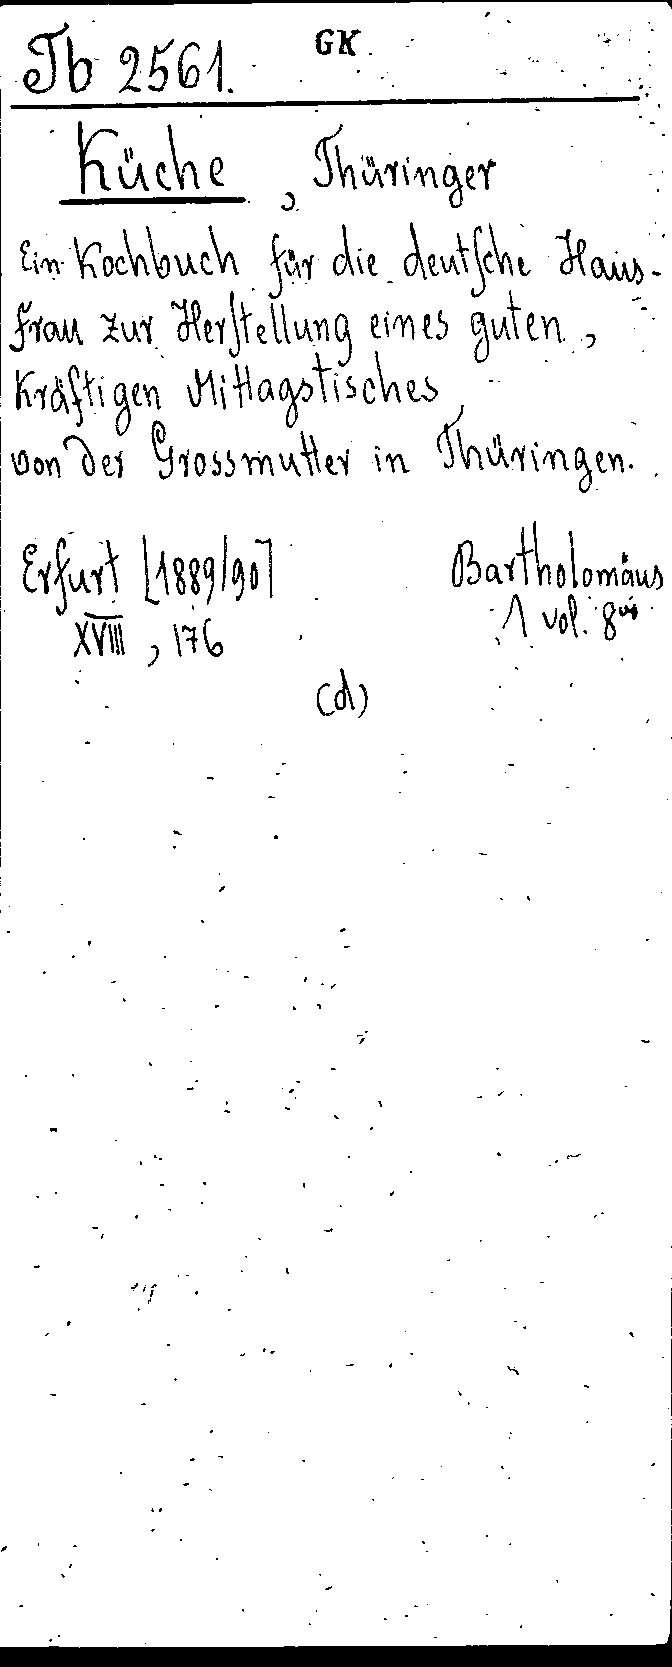 Tb 2561. GK
Küche, Thüringer
Ein Kochbuch für die deutſche Haus-
frau zur Herſtellung eines guten,
kräftigen Mittagstisches
von der Grossmutter in Thüringen.
Erfurt [1889/90] Bartholomäus
XVIII, 176 1 vol. 8vo
(d)